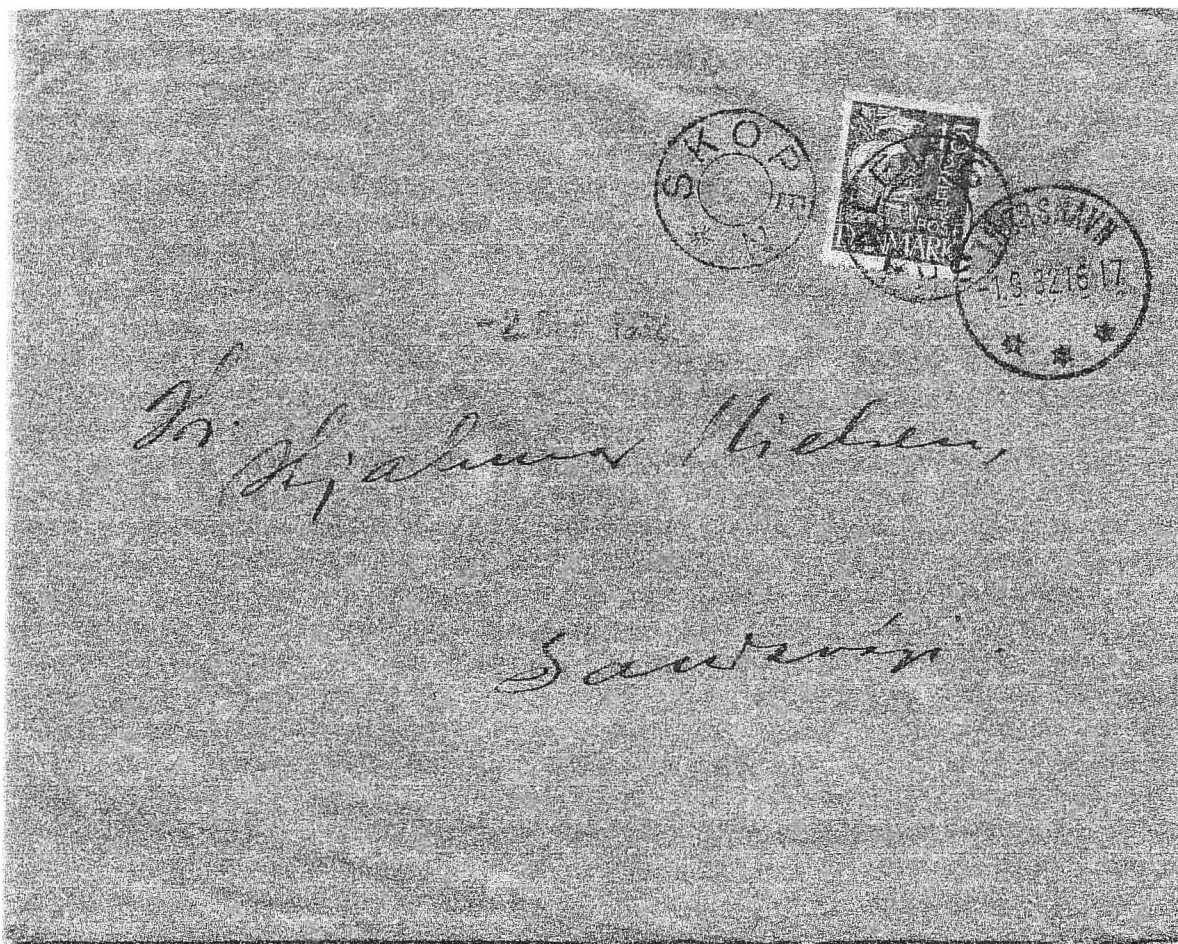 SKOPE
DANMARK
THORSHAVN
-1.9.32 16-17
-2
Hr.
Hjalmar Nielsen,
Sandevaag.